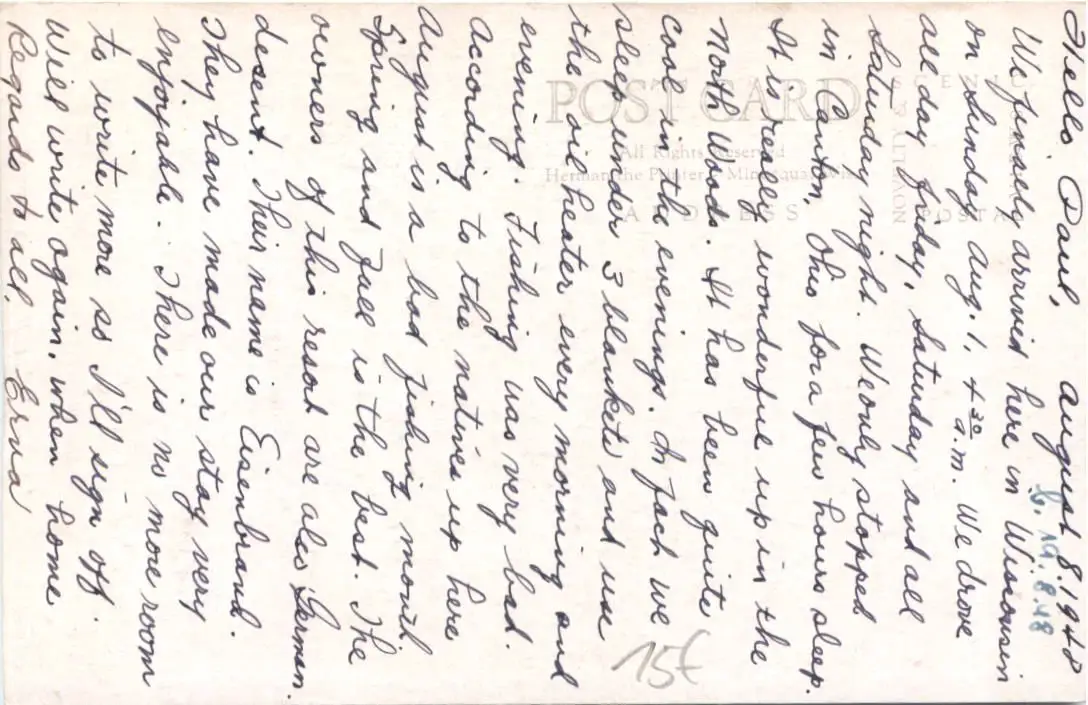 Hello Paul, August 8, 1948
b. 19.8.48
We finally arrived here in Wisconsin
on Sunday Aug. 1, 4 30 a.m. We drove
all day Friday, Saturday and all
Saturday night. We only stopped
in Canton, Ohio for a few hours sleep.
It is really wonderful up in the
North Woods. It has been quite
cool in the evenings. In fact we
sleep under 3 blankets and use
the oil heater every morning and
evening. Fishing was very bad.
According to the natives up here
August is a bad fishing month
Spring and Fall is the best. The
owners of this resort are also German
desent. Their name is Eisenbrand.
They have made our stay very
enjoyable. There is no more room
to write more so I'll sign off.
Will write again, when home
Regards to all, Erna
15€
POST CARD
All Rights Reserved
Herman the Printer, Minocqua, Wis.
ADDRESS
SCENIC
& NOVELTY
POSTAL